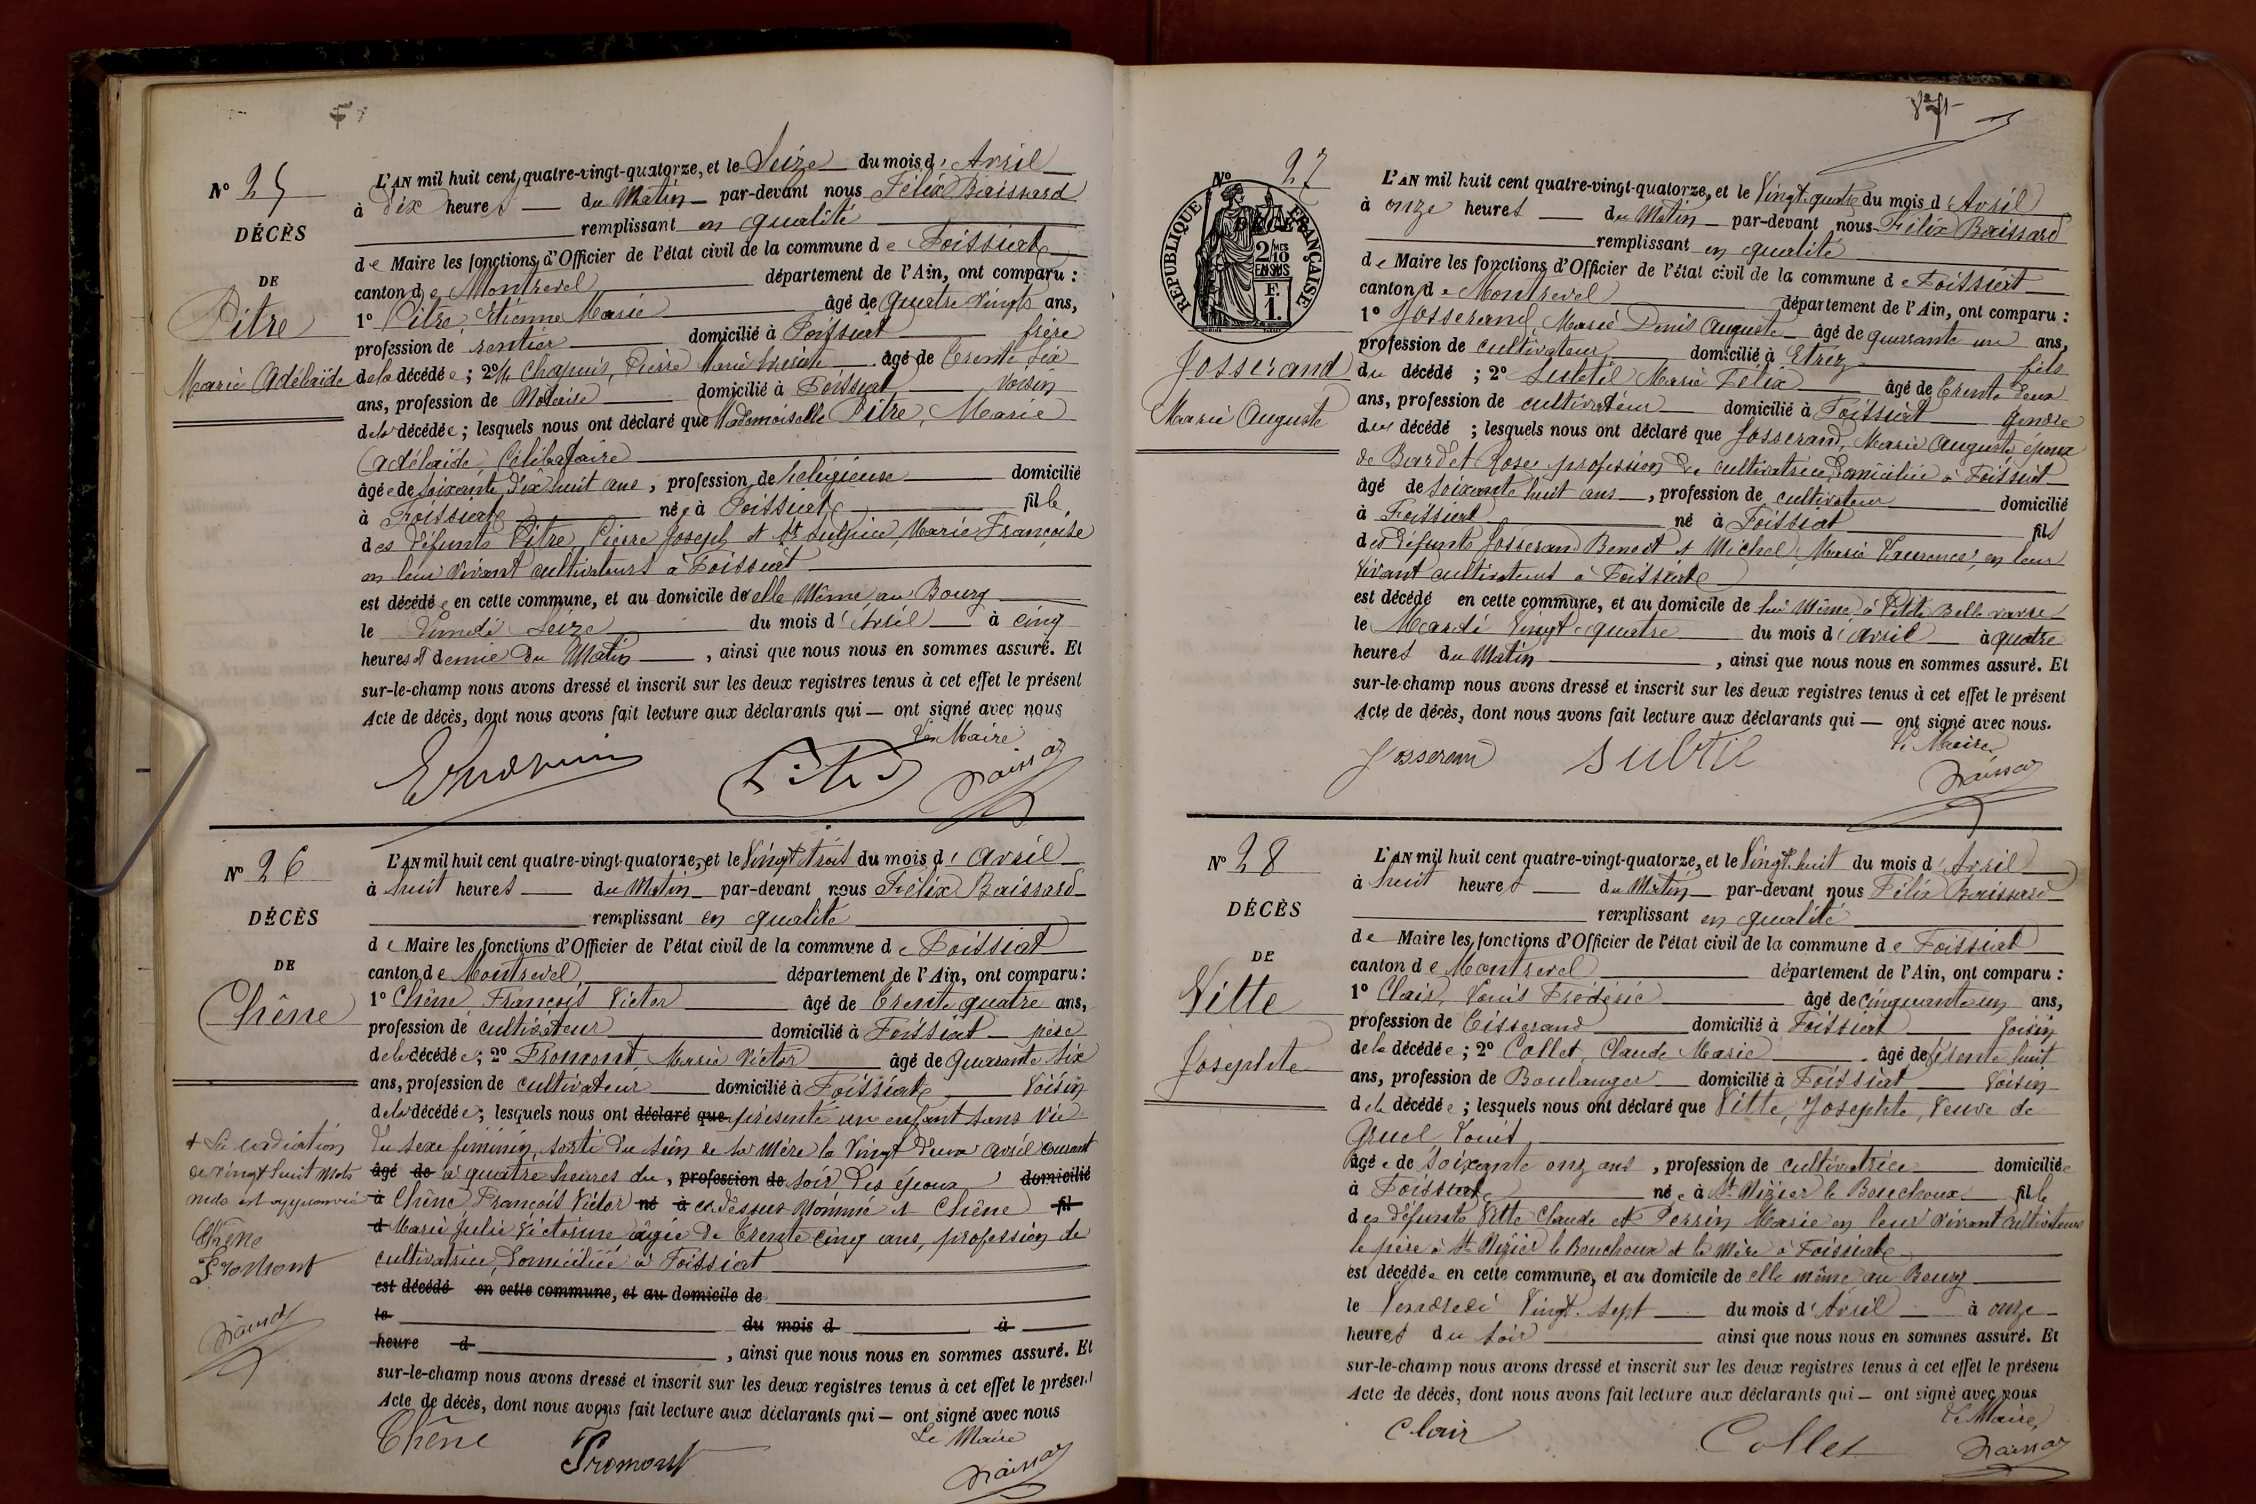 Nº 25
DÉCÈS
DE
Pitre
Marie Adélaïde
L'AN mil huit cent quatre-vingt-quatorze, et le Seize du mois d' Avril
à Dix heures du Matin par-devant nous Félix Boissard
remplissant en qualité
de Maire les fonctions d'Officier de l'état civil de la commune de Foissiat
canton de Montrevel département de l'Ain, ont comparu :
1º Pitre, Etienne Marie âgé de quatre vingts ans,
profession de rentier domicilié à Foissiat frère
de la décédée ; 2º Chapuis, Pierre Marie âgé de trente six
ans, profession de Notaire domicilié à Foissiat voisin
de la décédée ; lesquels nous ont déclaré que Mademoiselle Pitre, Marie
Adélaïde, Célibataire
âgée de soixante dix huit ans, profession de religieuse domicilié
à Foissiat née à Foissiat fille
des défunts Pitre, Pierre Joseph et St Sulpice, Marie Françoise
en leur vivant cultivateurs à Foissiat
est décédée en cette commune, et au domicile de elle même au Bourg
le Lundi Seize du mois d'Avril à cinq
heures et demie du Matin, ainsi que nous nous en sommes assuré. Et
sur-le-champ nous avons dressé et inscrit sur les deux registres tenus à cet effet le présent
Acte de décès, dont nous avons fait lecture aux déclarants qui — ont signé avec nous
Le Maire
Pitre
Nº 26
DÉCÈS
DE
Chêne
L'AN mil huit cent quatre-vingt-quatorze, et le Vingt trois du mois d' Avril
à huit heures du Matin par-devant nous Félix Boissard
remplissant en qualité
de Maire les fonctions d'Officier de l'état civil de la commune de Foissiat
canton de Montrevel département de l'Ain, ont comparu :
1º Chêne François Victor âgé de trente quatre ans,
profession de cultivateur domicilié à Foissiat père
de la décédée ; 2º Fromont, Marie Victor âgé de quarante six
ans, profession de cultivateur domicilié à Foissiat Voisin
de la décédée ; lesquels nous ont déclaré que présenté un enfant sans vie
du sexe féminin, sorti du sein de sa mère le Vingt deux avril courant
âgé de à quatre heures du, profession de soir des époux domicilié
à Chêne François Victor né à ci dessus nommé et Chêne fil
d Marie Julie Victorine âgée de trente cinq ans, profession de
cultivatrice, domiciliée à Foissiat
est décédé en cette commune, et au domicile de
le du mois d à
heure d , ainsi que nous nous en sommes assuré. Et
sur-le-champ nous avons dressé et inscrit sur les deux registres tenus à cet effet le présent
Acte de décès, dont nous avons fait lecture aux déclarants qui — ont signé avec nous
Le Maire
Chêne
Fromont
+ La radiation
de vingt huit mots
nuls est approuvée
Chêne
Fromont
Nº 27
RÉPUBLIQUE FRANÇAISE
2/10 MES
EN SUS
F.
1.
Josserand
Marie Auguste
L'AN mil huit cent quatre-vingt-quatorze, et le Vingt quatre du mois d' Avril
à onze heures du Matin par-devant nous Félix Boissard
remplissant en qualité
de Maire les fonctions d'Officier de l'état civil de la commune de Foissiat
canton de Montrevel département de l'Ain, ont comparu :
1º Josserand, Marie Denis Auguste âgé de quarante un ans,
profession de cultivateur domicilié à Etrez fils
du décédé ; 2º Subtil Marie Félix âgé de trente deux
ans, profession de cultivateur domicilié à Foissiat Gendre
du décédé ; lesquels nous ont déclaré que Josserand, Marie Auguste, époux
de Bardet Rose, profession de cultivatrice, domiciliée à Foissiat
âgé de soixante huit ans, profession de cultivateur domicilié
à Foissiat né à Foissiat fils
des défunts Josserand Benoit et Michel, Marie Laurence, en leur
vivant cultivateurs à Foissiat
est décédé en cette commune, et au domicile de lui même, à Petite Belle
le Mardi Vingt quatre du mois d'Avril à quatre
heures du Matin, ainsi que nous nous en sommes assuré. Et
sur-le-champ nous avons dressé et inscrit sur les deux registres tenus à cet effet le présent
Acte de décès, dont nous avons fait lecture aux déclarants qui — ont signé avec nous.
Le Maire
Josseran Subtil
Nº 28
DÉCÈS
DE
Vitte
Josephte
L'AN mil huit cent quatre-vingt-quatorze, et le Vingt huit du mois d' Avril
à huit heures du Matin par-devant nous Félix Boissard
remplissant en qualité
de Maire les fonctions d'Officier de l'état civil de la commune de Foissiat
canton de Montrevel département de l'Ain, ont comparu :
1º Clair, Louis Frédéric âgé de cinquante un ans,
profession de Tisserand domicilié à Foissiat Voisin
de la décédée ; 2º Collet, Claude Marie âgé de trente huit
ans, profession de Boulanger domicilié à Foissiat Voisin
de la décédée ; lesquels nous ont déclaré que Vitte, Josephte, Veuve de
Gruel, Louis
âgée de soixante onz ans, profession de cultivatrice domiciliée
à Foissiat née à St Nizier le Bouchoux fille
des défunts Vitte Claude et Perrin Marie en leur vivant cultivateurs
le père à St Nizier le Bouchoux et la mère à Foissiat
est décédée en cette commune, et au domicile de elle même au Bourg
le Vendredi Vingt sept du mois d'Avril à onze
heures du soir ainsi que nous nous en sommes assuré. Et
sur-le-champ nous avons dressé et inscrit sur les deux registres tenus à cet effet le présent
Acte de décès, dont nous avons fait lecture aux déclarants qui — ont signé avec nous
Le Maire
Clair Collet